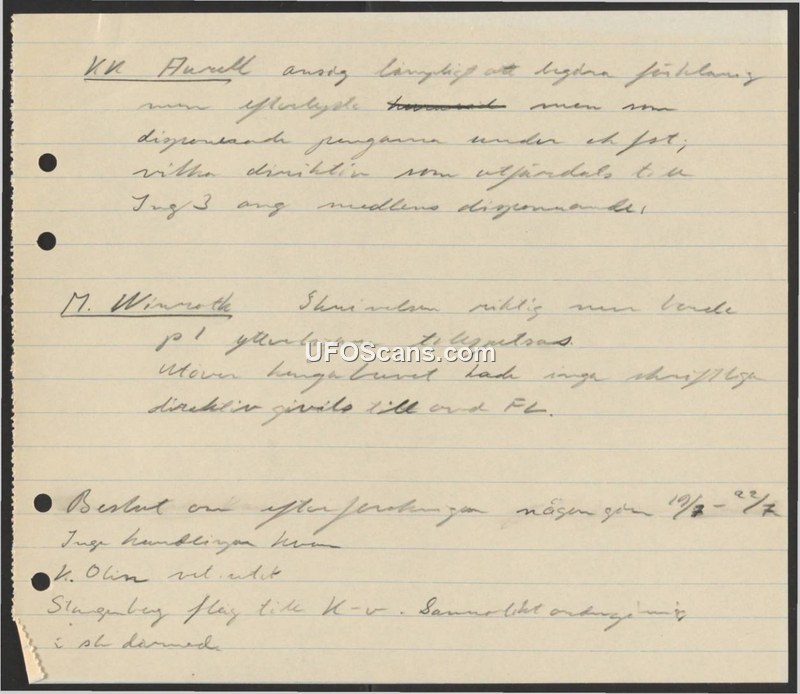 K.K. Aurell ansåg lämpligt att begära förklaring
men efterlyste men som
disponerade pengarna under
vilka direktiv som utfärdats till
Ing 3 ang medlens disponerande.
M. Winroth Skrivelsen riktig men borde
på 1 ytterligare tillspetsas.
Utöver kungabrevet hade inga skriftliga
direktiv givits till FL.
UFOScans.com
Beslut om efterforskningen någon gång 19/7 – 22/7
Inga handlingar kvar
K. Olin
Stangenberg flög till K-v. Sannolikt
i sb därmed.